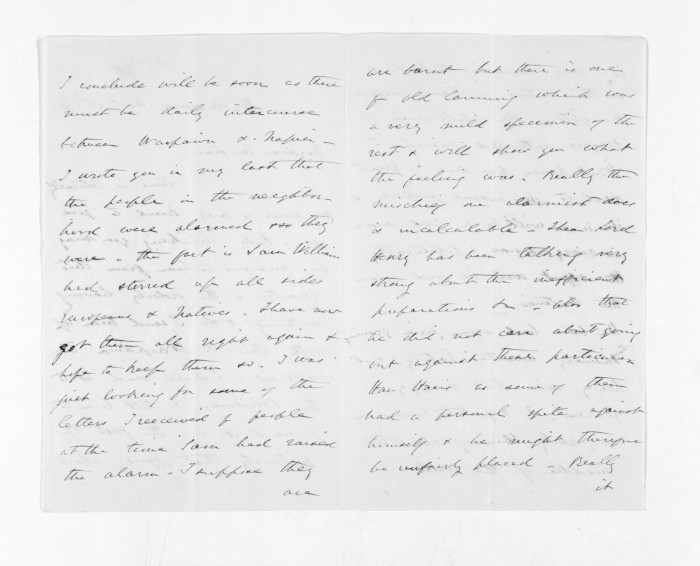 I conclude will be soon as there
must be daily intercourse
between Waipawa & Napier –
I wrote you in my last that
the people in the neighbor-
hood were alarmed & so they
were – the fact is Sam Williams
had stirred up all sides
Europeans & Natives. I have now
got them all right again &
hope to keep them so. I was
just looking for some of the
letters I received of people
at the time Sam had raised
the alarm. I suppose they
are
are burnt but there is one
of old Canning which was
a very mild specimen of the
rest & will show you what
the feeling was. Really the
mischief one alarmist does
is incalculable. Then Lord
Henry has been talking very
strong about the inefficient
preparations &c – also that
he did not care about going
out against these particular
Hau Haus as some of them
had a personal spite against
himself & he might therefore
be unfairly placed – Really
it